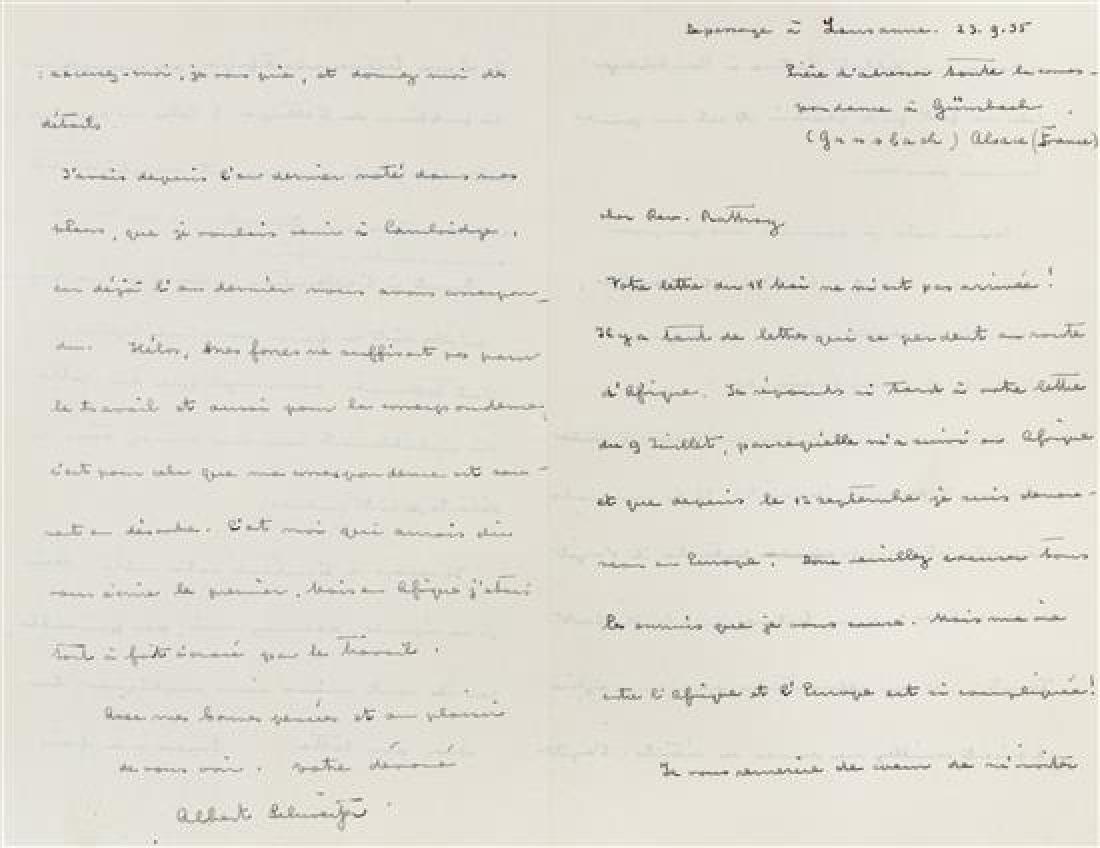 de passage à Lausanne. 23.9.35
Prière d'adresser toute la corres-
pondance à Günsbach
(Gunsbach) Alsace (France)
cher Rev. Rattray
Votre lettre du 18 Mai ne m'est pas arrivée!
Il y a tant de lettres qui se perdent en route
d'Afrique. Je réponds si tard à votre lettre
du 9 Juillet, parcequ'elle m'a suivi en Afrique
et que depuis le 13 septembre je suis de nou-
veau en Europe. Donc veuillez excuser tous
les ennuis que je vous cause. Mais ma vie
entre l'Afrique et l'Europe est si compliquée!
Je vous remercie de coeur de m'inviter
: excusez-moi, je vous prie, et donnez moi des
détails.
J'avais depuis l'an dernier noté dans mes
plans, que je voulais venir à Cambridge.
car déjà l'an dernier nous avons correspon-
du. Hélas, mes forces ne suffisent pas pour
le travail et aussi pour la correspondance,
c'est pour cela que ma correspondance est sou-
vent en désordre. C'est moi qui aurais dû
vous écrire le premier. Mais en Afrique j'étais
tout à fait écrasé par le travail.
Avec mes bonnes pensées et au plaisir
de vous voir. votre dévoué
Albert Schweitzer